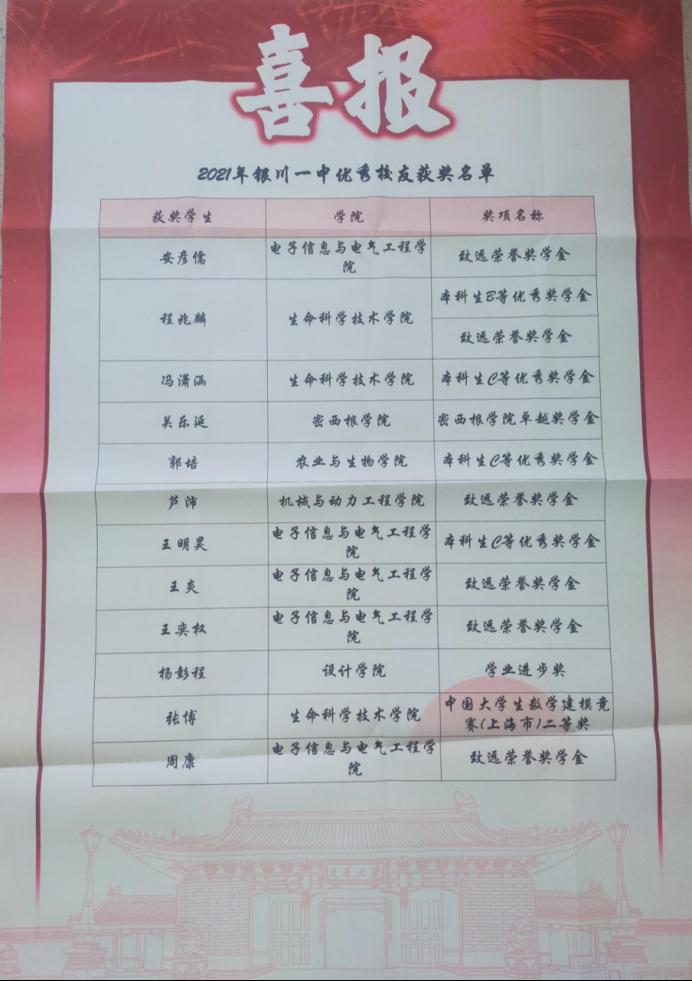 喜报
2021年银川一中优秀校友获奖名单
获奖学生 学院 奖项名称
安彦儒 电子信息与电气工程学院 致远荣誉奖学金
程兆麟 生命科学技术学院 本科生B等优秀奖学金
致远荣誉奖学金
冯潇涵 生命科学技术学院 本科生C等优秀奖学金
关乐延 密西根学院 密西根学院卓越奖学金
郭培 农业与生物学院 本科生C等优秀奖学金
芦沛 机械与动力工程学院 致远荣誉奖学金
王明昊 电子信息与电气工程学院 本科生C等优秀奖学金
王炎 电子信息与电气工程学院 致远荣誉奖学金
王奕权 电子信息与电气工程学院 致远荣誉奖学金
杨彭程 设计学院 学业进步奖
张博 生命科学技术学院 中国大学生数学建模竞赛(上海市)二等奖
周康 电子信息与电气工程学院 致远荣誉奖学金